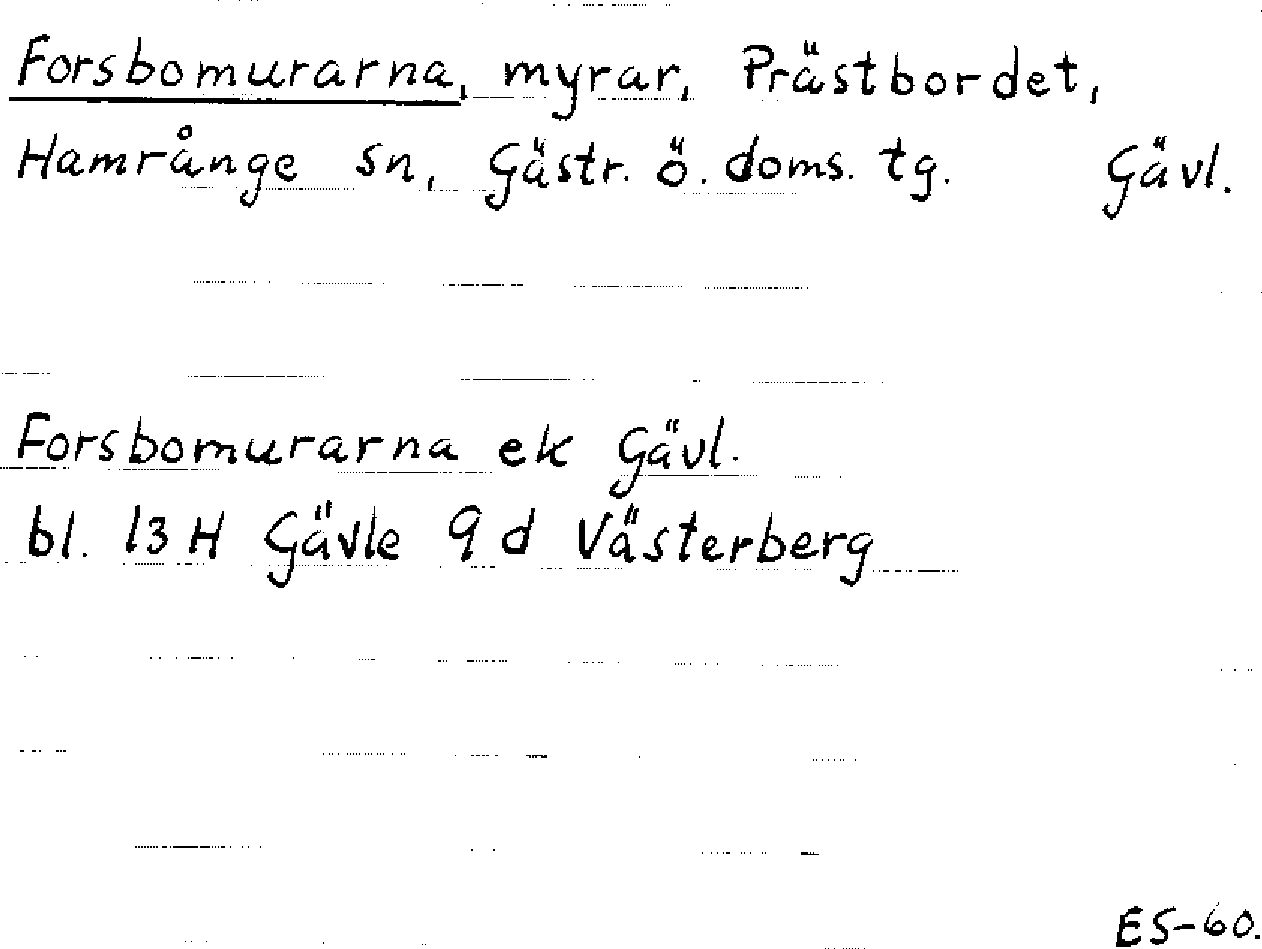 Forsbomurarna, myrar, Prästbordet,
Hamrånge sn, Gästr. ö. doms. tg. Gävl.
Forsbomurarna ek Gävl.
bl. 13 H Gävle 9 d Västerberg
ES-60.